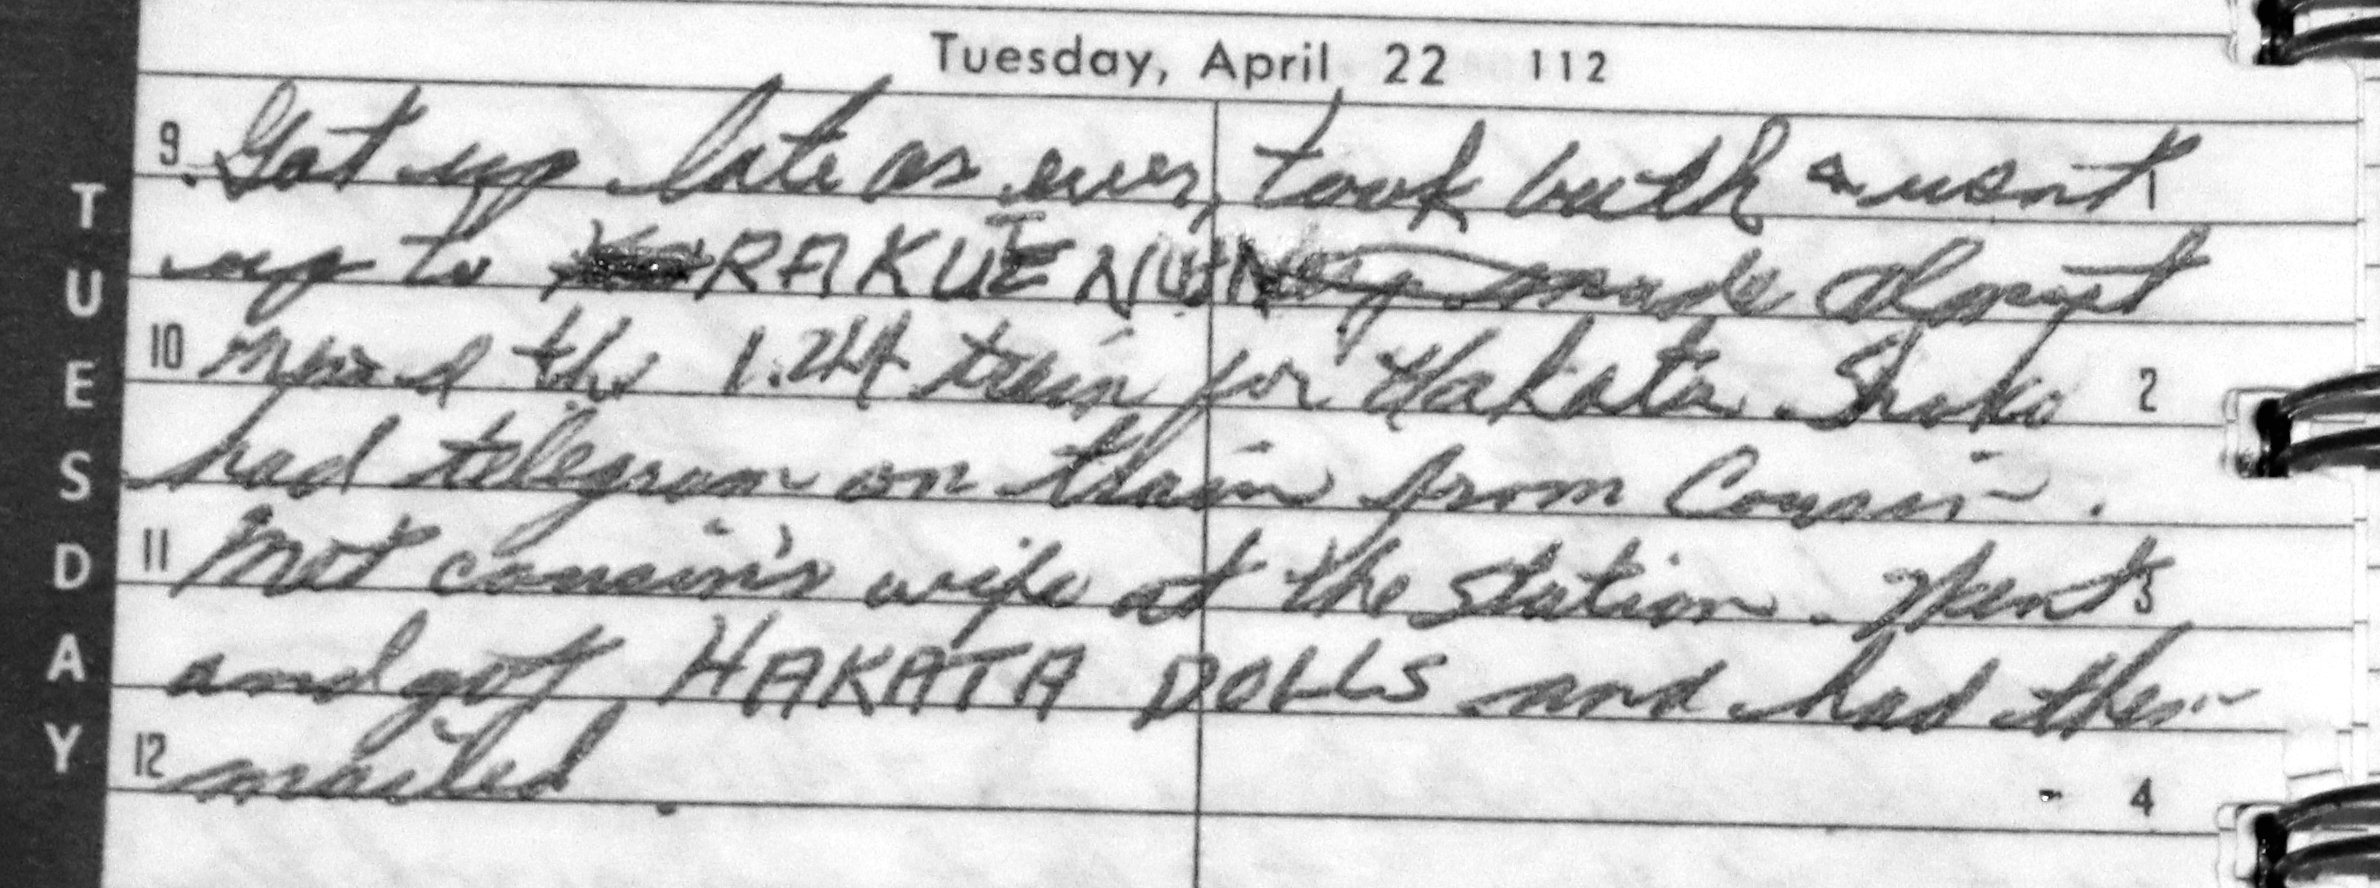 Tuesday, April 22 112
9 Got up late as ever, took bath & went 1
up to RAKUEN made almost
10 missed the 1.24 train for Hakata. Shako 2
had telegram on train from Cousin.
11 Met cousin's wife at the station. Went 3
and got HAKATA DOLLS and had them
12 mailed. 4
TUESDAY